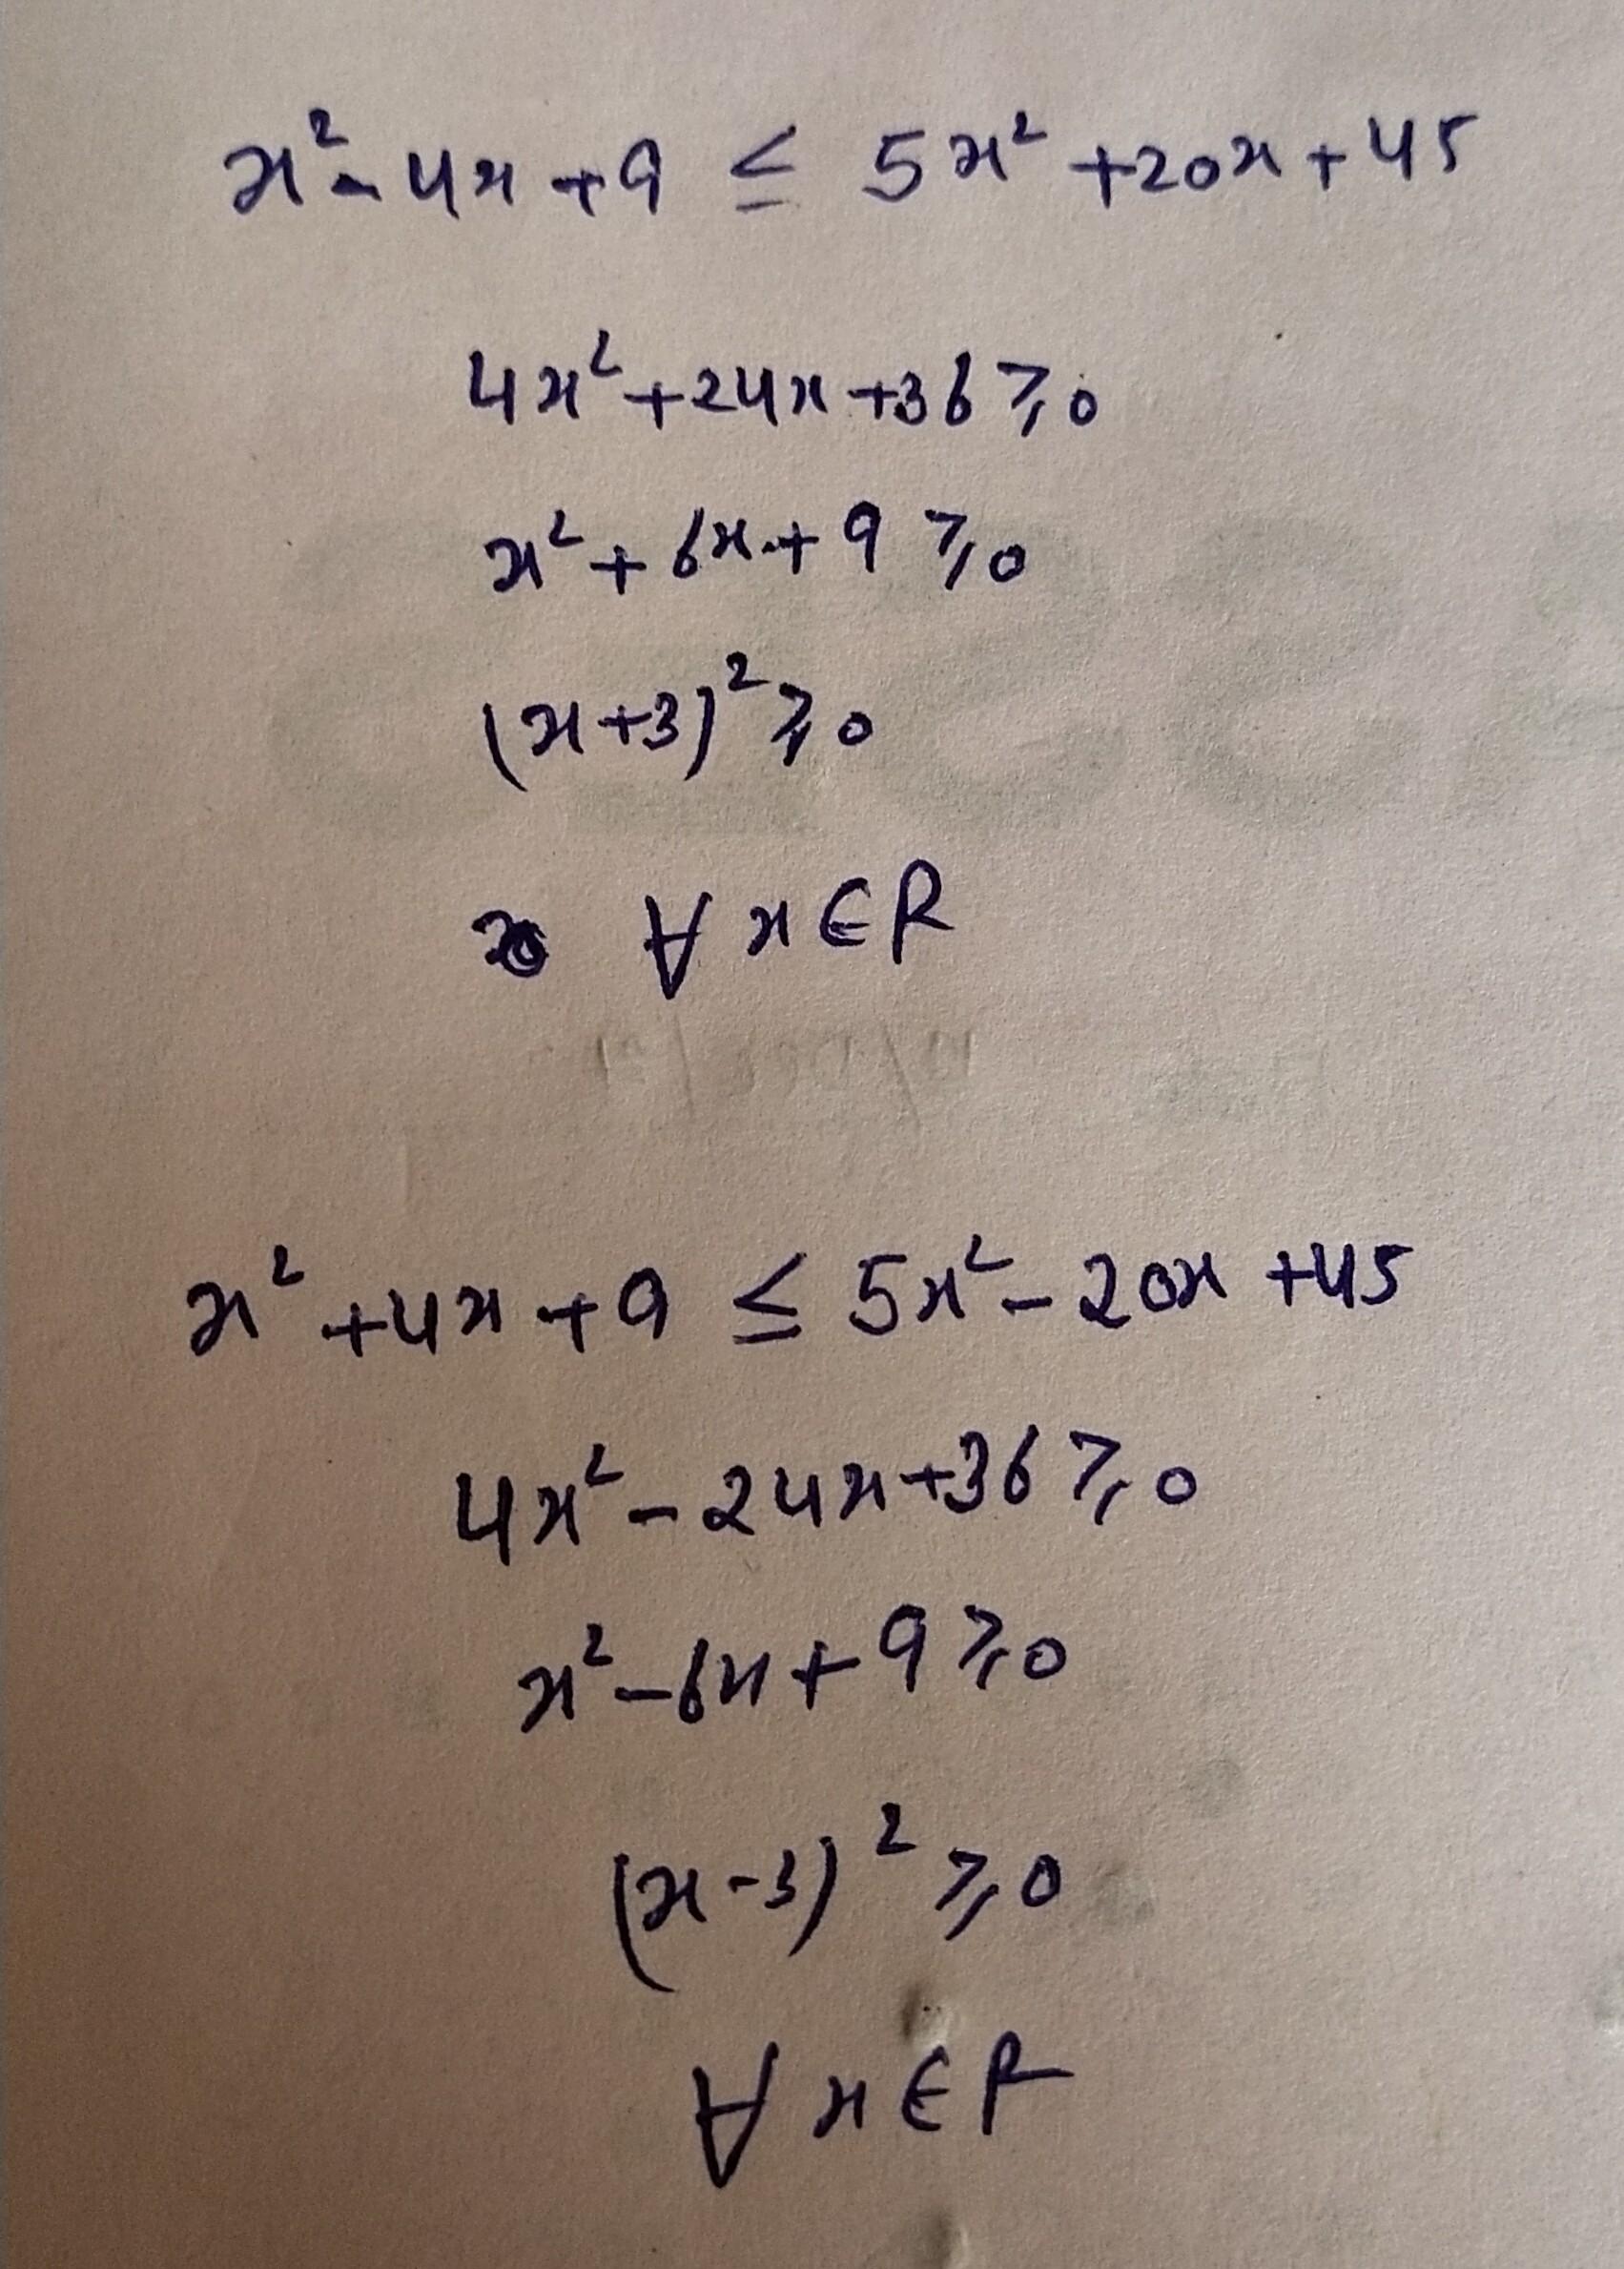 x² - 4x + 9 ≤ 5x² + 20x + 45
4x² + 24x + 36 ≥ 0
x² + 6x + 9 ≥ 0
(x+3)² ≥ 0
∀ x ∈ R
x² + 4x + 9 ≤ 5x² - 20x + 45
4x² - 24x + 36 ≥ 0
x² - 6x + 9 ≥ 0
(x-3)² ≥ 0
∀ x ∈ R